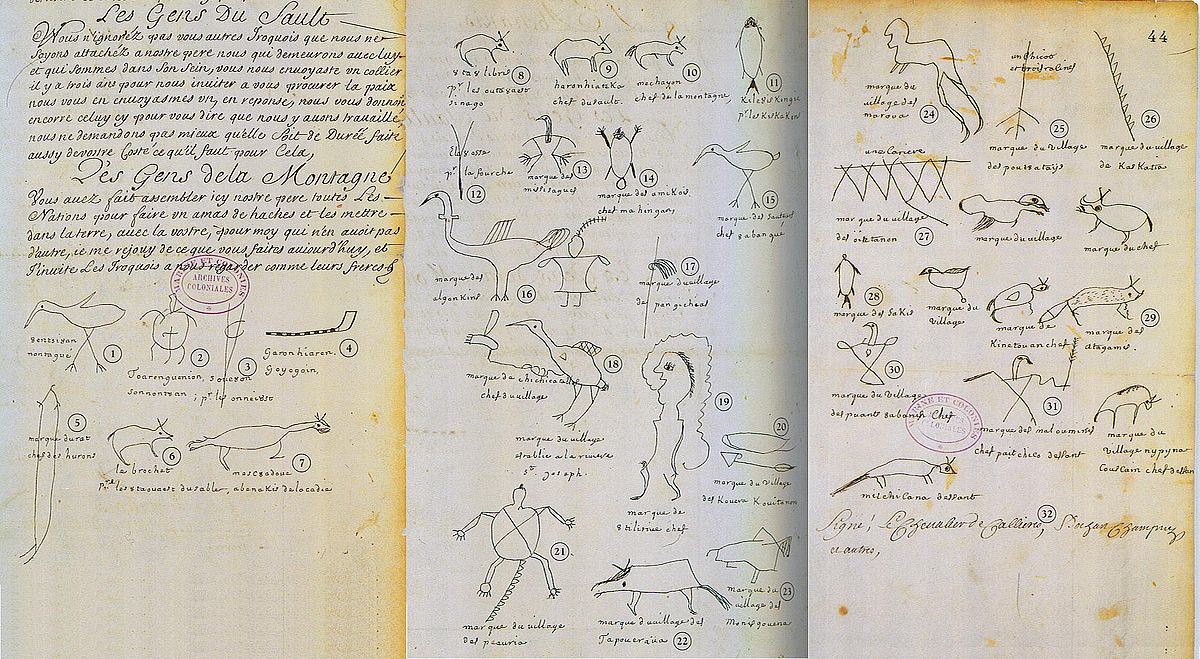 Les Gens Du Sault
Vous n'ignorez pas vous autres Iroquois que nous ne
soyons attachez a nostre pere nous qui demeurons avec luy
et qui sommes dans son sein, vous nous envoyaste un collier
il y a trois ans pour nous inviter a vous procurer la paix
nous vous en envoyasmes un, en reponse, nous vous donnons
encorre celuy cy pour vous dire que nous y avons travaillé
nous ne demandons pas mieux qu'elle soit de Durée, faite
aussy de vostre Coste ce qu'il faut pour Cela,
Des Gens de la Montagne
Vous avez fait assembler icy nostre pere toutes Les
Nations pour faire un amas de haches et les mettre
dans la terre, avec la vostre, pour moy qui n'en avoit pas
d'autre, je me rejouy de ce que vous faites aujourd'huy, et
J'invite Les Iroquois a nous regarder comme leurs freres
MARINE ET COLONIES
ARCHIVES
COLONIALES
1
2
3
4
Toarenguenion,
sonnontuan
pr le onneiost
Garonhiaren.
Goyogoin,
5
marque du rat
chef des hurons
6
le brochet
7
mescadoue
abenakis de lacadie
8
pr. les outavost
sinago
9
haronhiateka
chef du sault.
10
mechayon
chef de la montagne
11
Kileouiskingie
pr les KisKaKons
12
Elaouesse
pr la fourche
13
marque des
missisagues
14
marque des amikois
chef mahingan,
15
marque des sauteurs
chef 8abangue
16
marque des
algonkins
17
marque du village
de pangicheas
18
marque de chichicatalle
chef du village
marque du village
establie a la riviere
St Joseph.
19
marque de
8tilirine chef
20
marque du village
des Kouera Kouitanon
21
marque du village
des peauria
22
marque du village des
Tapouaroua
23
marque du
village des
Monisgouena
44
24
marque du
village des
maroua
25
un chicot
et trois racines
marque du village
des pouteatays
26
marque du village
de KasKaKia
27
une Cariere
marque du village
des oietanon
marque du village
marque du chef
28
marque des saKis
marque du
village
marque de
Kinetouan chef
29
marque des
atagamis.
30
marque du village
des puant 8abanis chef
31
marque des maloumines
chef paitchico deffant
marque du
village nypyna
Couscam chef deffant
melchicana deffant
MARINE ET COLONIES
32
Signé, Le Chevalier de Callieres, Bochart Champigny
et autres,